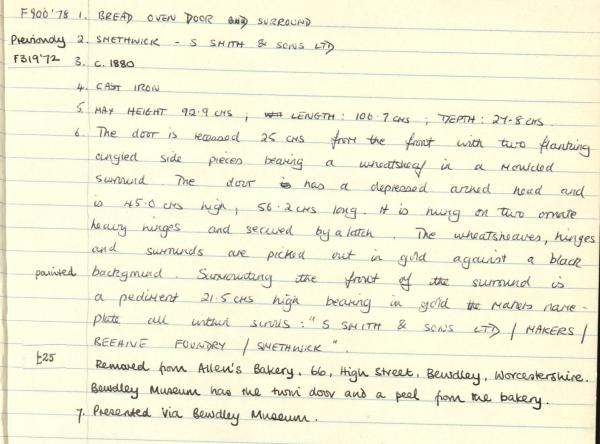 F900'78 1. BREAD OVEN DOOR AND SURROUND
Previously 2. SMETHWICK - S SMITH & SONS LTD
F319'72 3. c. 1880
4. CAST IRON
5 MAX HEIGHT 92.9 CMS , LENGTH: 106.7 CMS ; DEPTH: 27.8 CMS.
6. The door is recessed 25 cms from the front with two flanking
angled side pieces bearing a wheatsheaf in a moulded
surround. The door has a depressed arched head and
is 45.0 cms high, 56.2 cms long. It is hung on two ornate
heavy hinges and secured by a latch. The wheatsheaves, hinges
and surrounds are picked out in gold against a black
painted background. Surmounting the front of the surround is
a pediment 21.5 cms high bearing in gold the makers name-
plate all within scrolls: "S SMITH & SONS LTD / MAKERS /
BEEHIVE FOUNDRY / SMETHWICK".
£25 Removed from Allen's Bakery, 66, High Street, Bewdley, Worcestershire.
Bewdley Museum has the twin door and a peel from the bakery.
7. Presented via Bewdley Museum.